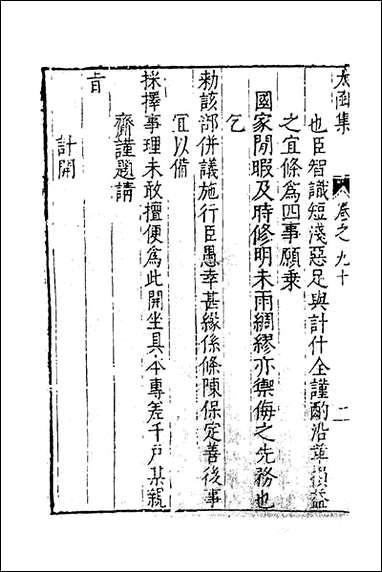 太函集 卷之九十 二
也臣智識短淺惡足與計什全謹酌沿革損益
之宜條為四事願乘
國家閒暇及時修明未雨綢繆亦禦侮之先務也
乞
勑該部併議施行臣愚幸甚緣係條陳保定善後事
宜以備
採擇事理未敢擅便為此開坐具本專差千戶某親
齎謹題請
旨
計開